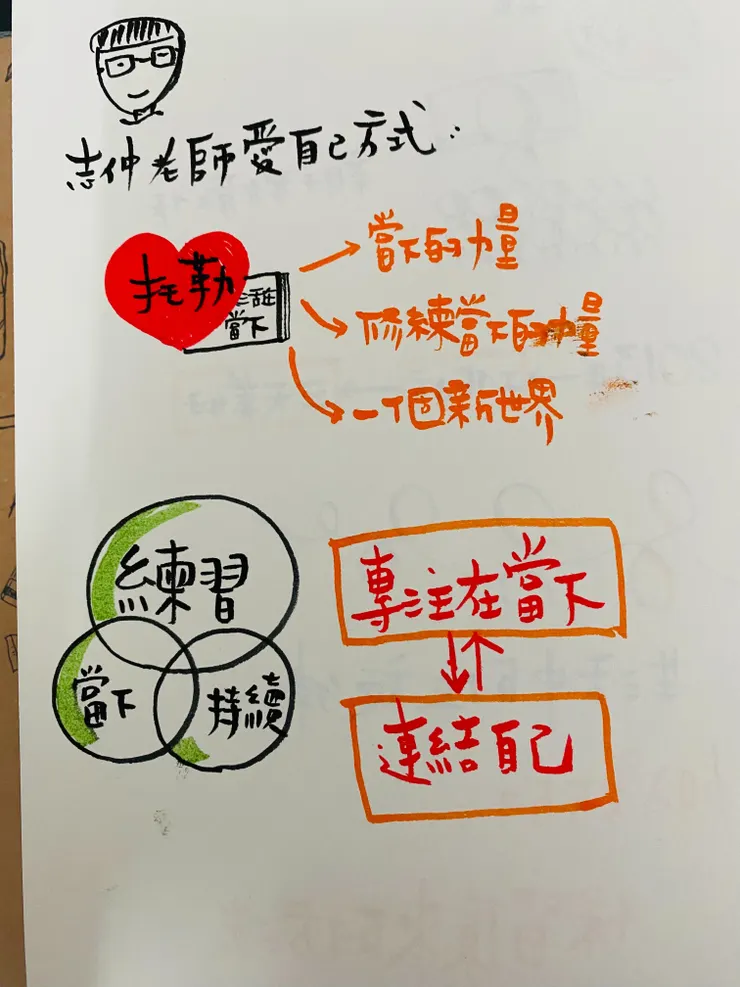 志仲老師愛自己方式：
托勒
活在
當下
當下的力量
修練當下的力量
一個新世界
練習
當下
持續
專注在當下
連結自己